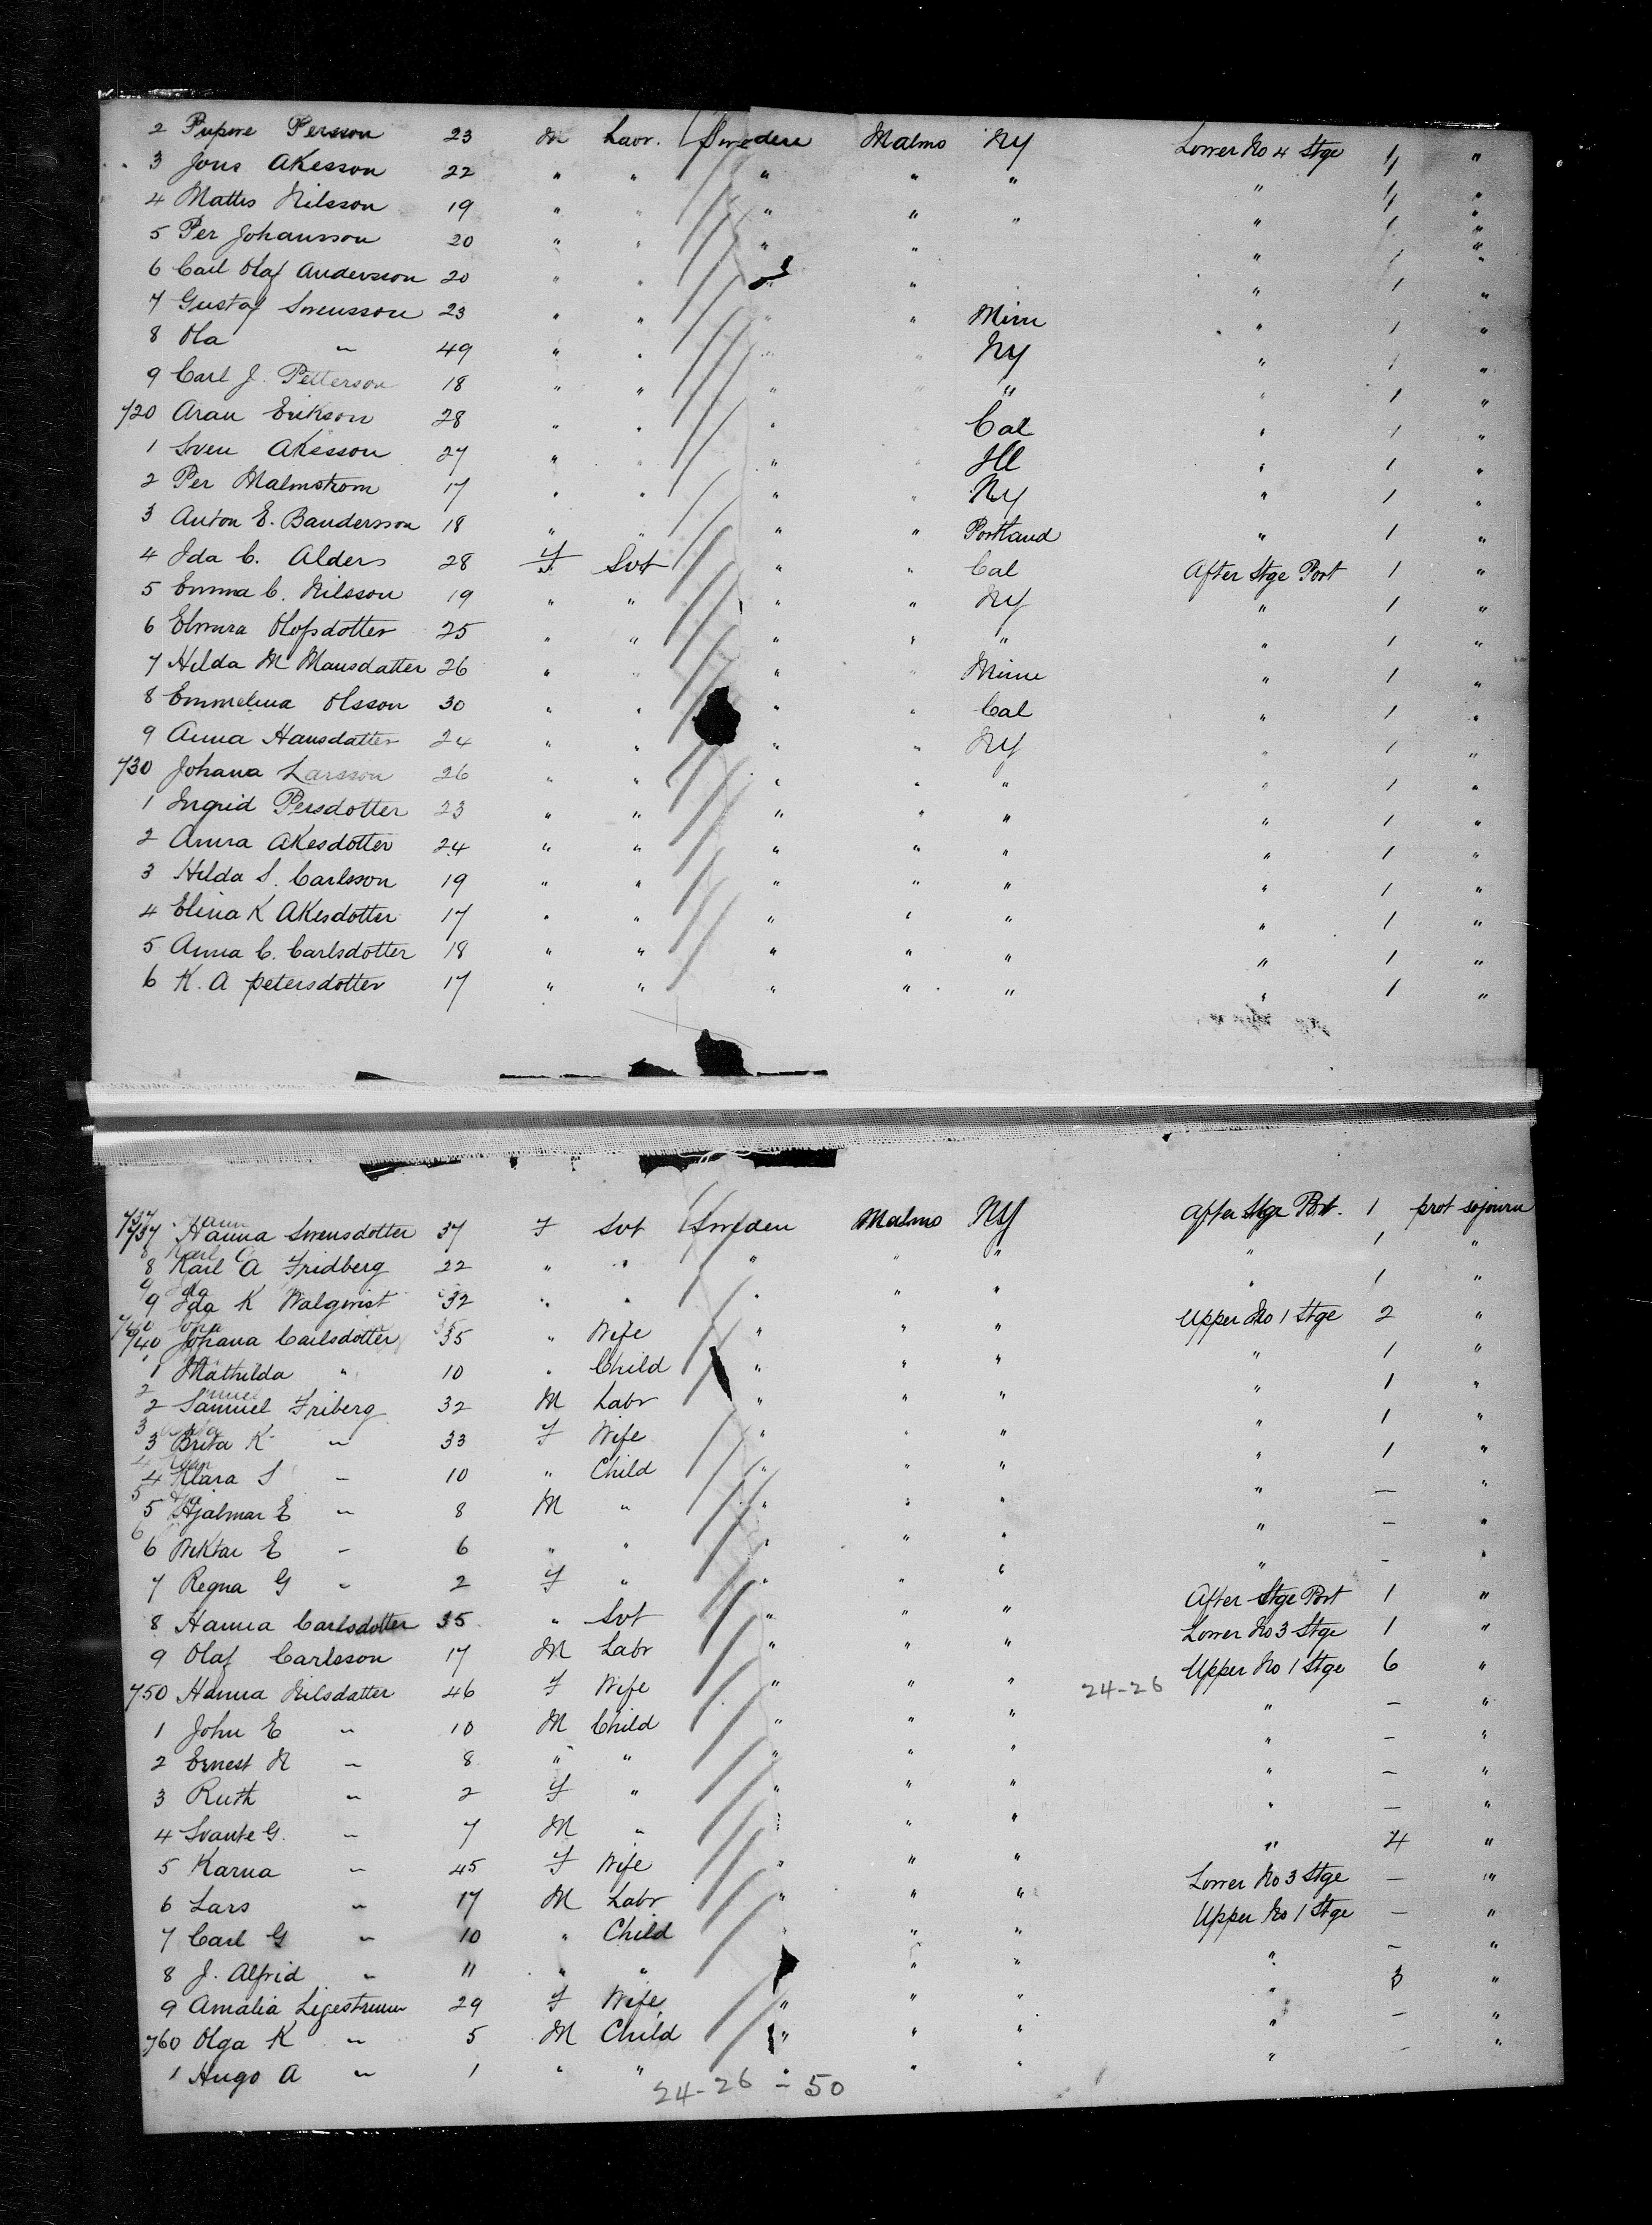 2 Persson 23 M Labr. Sweden Malmo NY Lower No 4 Stge 1 "
3 Jons Akesson 22 " " " " " " 1 "
4 Mattis Nilsson 19 " " " " " " 1 "
5 Per Johansson 20 " " " " " 1 "
6 Carl Olaf Andersson 20 " " " " " 1 "
7 Gustaf Swensson 23 " " " " Minn " 1 "
8 Ola " 49 " " " " NY " 1 "
9 Carl J. Petterson 18 " " " " " " 1 "
720 Aran Erikson 28 " " " " Cal " 1 "
1 Sven Akesson 27 " " " " Ill " 1 "
2 Per Malmstrom 17 " " " " NY " 1 "
3 Anton E. Bandersson 18 " " " " Portland " 1 "
4 Ida C. Alders 28 F Svt " " Cal After Stge Port 1 "
5 Emma C. Nilsson 19 " " " " NY " 1 "
6 Olofsdotter 25 " " " " " " 1 "
7 Hilda M Mansdatter 26 " " " " Minn " 1 "
8 Emmelina Olsson 30 " " " " Cal " 1 "
9 Anna Hansdatter 24 " " " " NY " 1 "
730 Johana Larsson 26 " " " " " " 1 "
1 Ingrid Persdotter 23 " " " " " " 1 "
2 Anna Akesdotter 24 " " " " " " 1 "
3 Hilda S. Carlsson 19 " " " " " " 1 "
4 Elina K Akesdotter 17 " " " " " " 1 "
5 Anna C. Carlsdotter 18 " " " " " " 1 "
6 K. A petersdotter 17 " " " " " " 1 "
737 Hanna Swensdotter 37 F Svt Sweden Malmo NY After Stge Port. 1 prot sojourn
8 Karl A Fridberg 22 " " " " " " 1 "
9 Ida K Walqwist 32 " " " " " " 1 "
740 Johana Carlsdotter 35 " Wife " " " Upper No 1 Stge 2 "
1 Mathilda " 10 " Child " " " " 1 "
2 Samuel Friberg 32 M Labr " " " " 1 "
3 Brita K " 33 F Wife " " " " 1 "
4 Klara S " 10 " Child " " " " 1 "
5 Hjalmar E " 8 M " " " " " — "
6 Wiktar E " 6 " " " " " " — "
7 Regna G " 2 F " " " " " — "
8 Hanna Carlsdotter 35 " Svt " " " After Stge Port 1 "
9 Olaf Carlsson 17 M Labr " " " Lower No 3 Stge 1 "
750 Hanna Nilsdatter 46 F Wife " " " 24-26 Upper No 1 Stge 6 "
1 John E " 10 M Child " " " " — "
2 Ernest N " 8 " " " " " " — "
3 Ruth " 2 F " " " " " — "
4 Svante G. " 7 M " " " " " — "
5 Karna " 45 F Wife " " " " 4 "
6 Lars " 17 M Labr " " " Lower No 3 Stge — "
7 Carl G " 10 " Child " " " Upper No 1 Stge — "
8 J. Alfrid " 11 " " " " " " — "
9 Amalia 29 F Wife " " " " 3 "
760 Olga K " 5 M Child " " " " — "
1 Hugo A " 1 " " " " " " — "
24-26 - 50